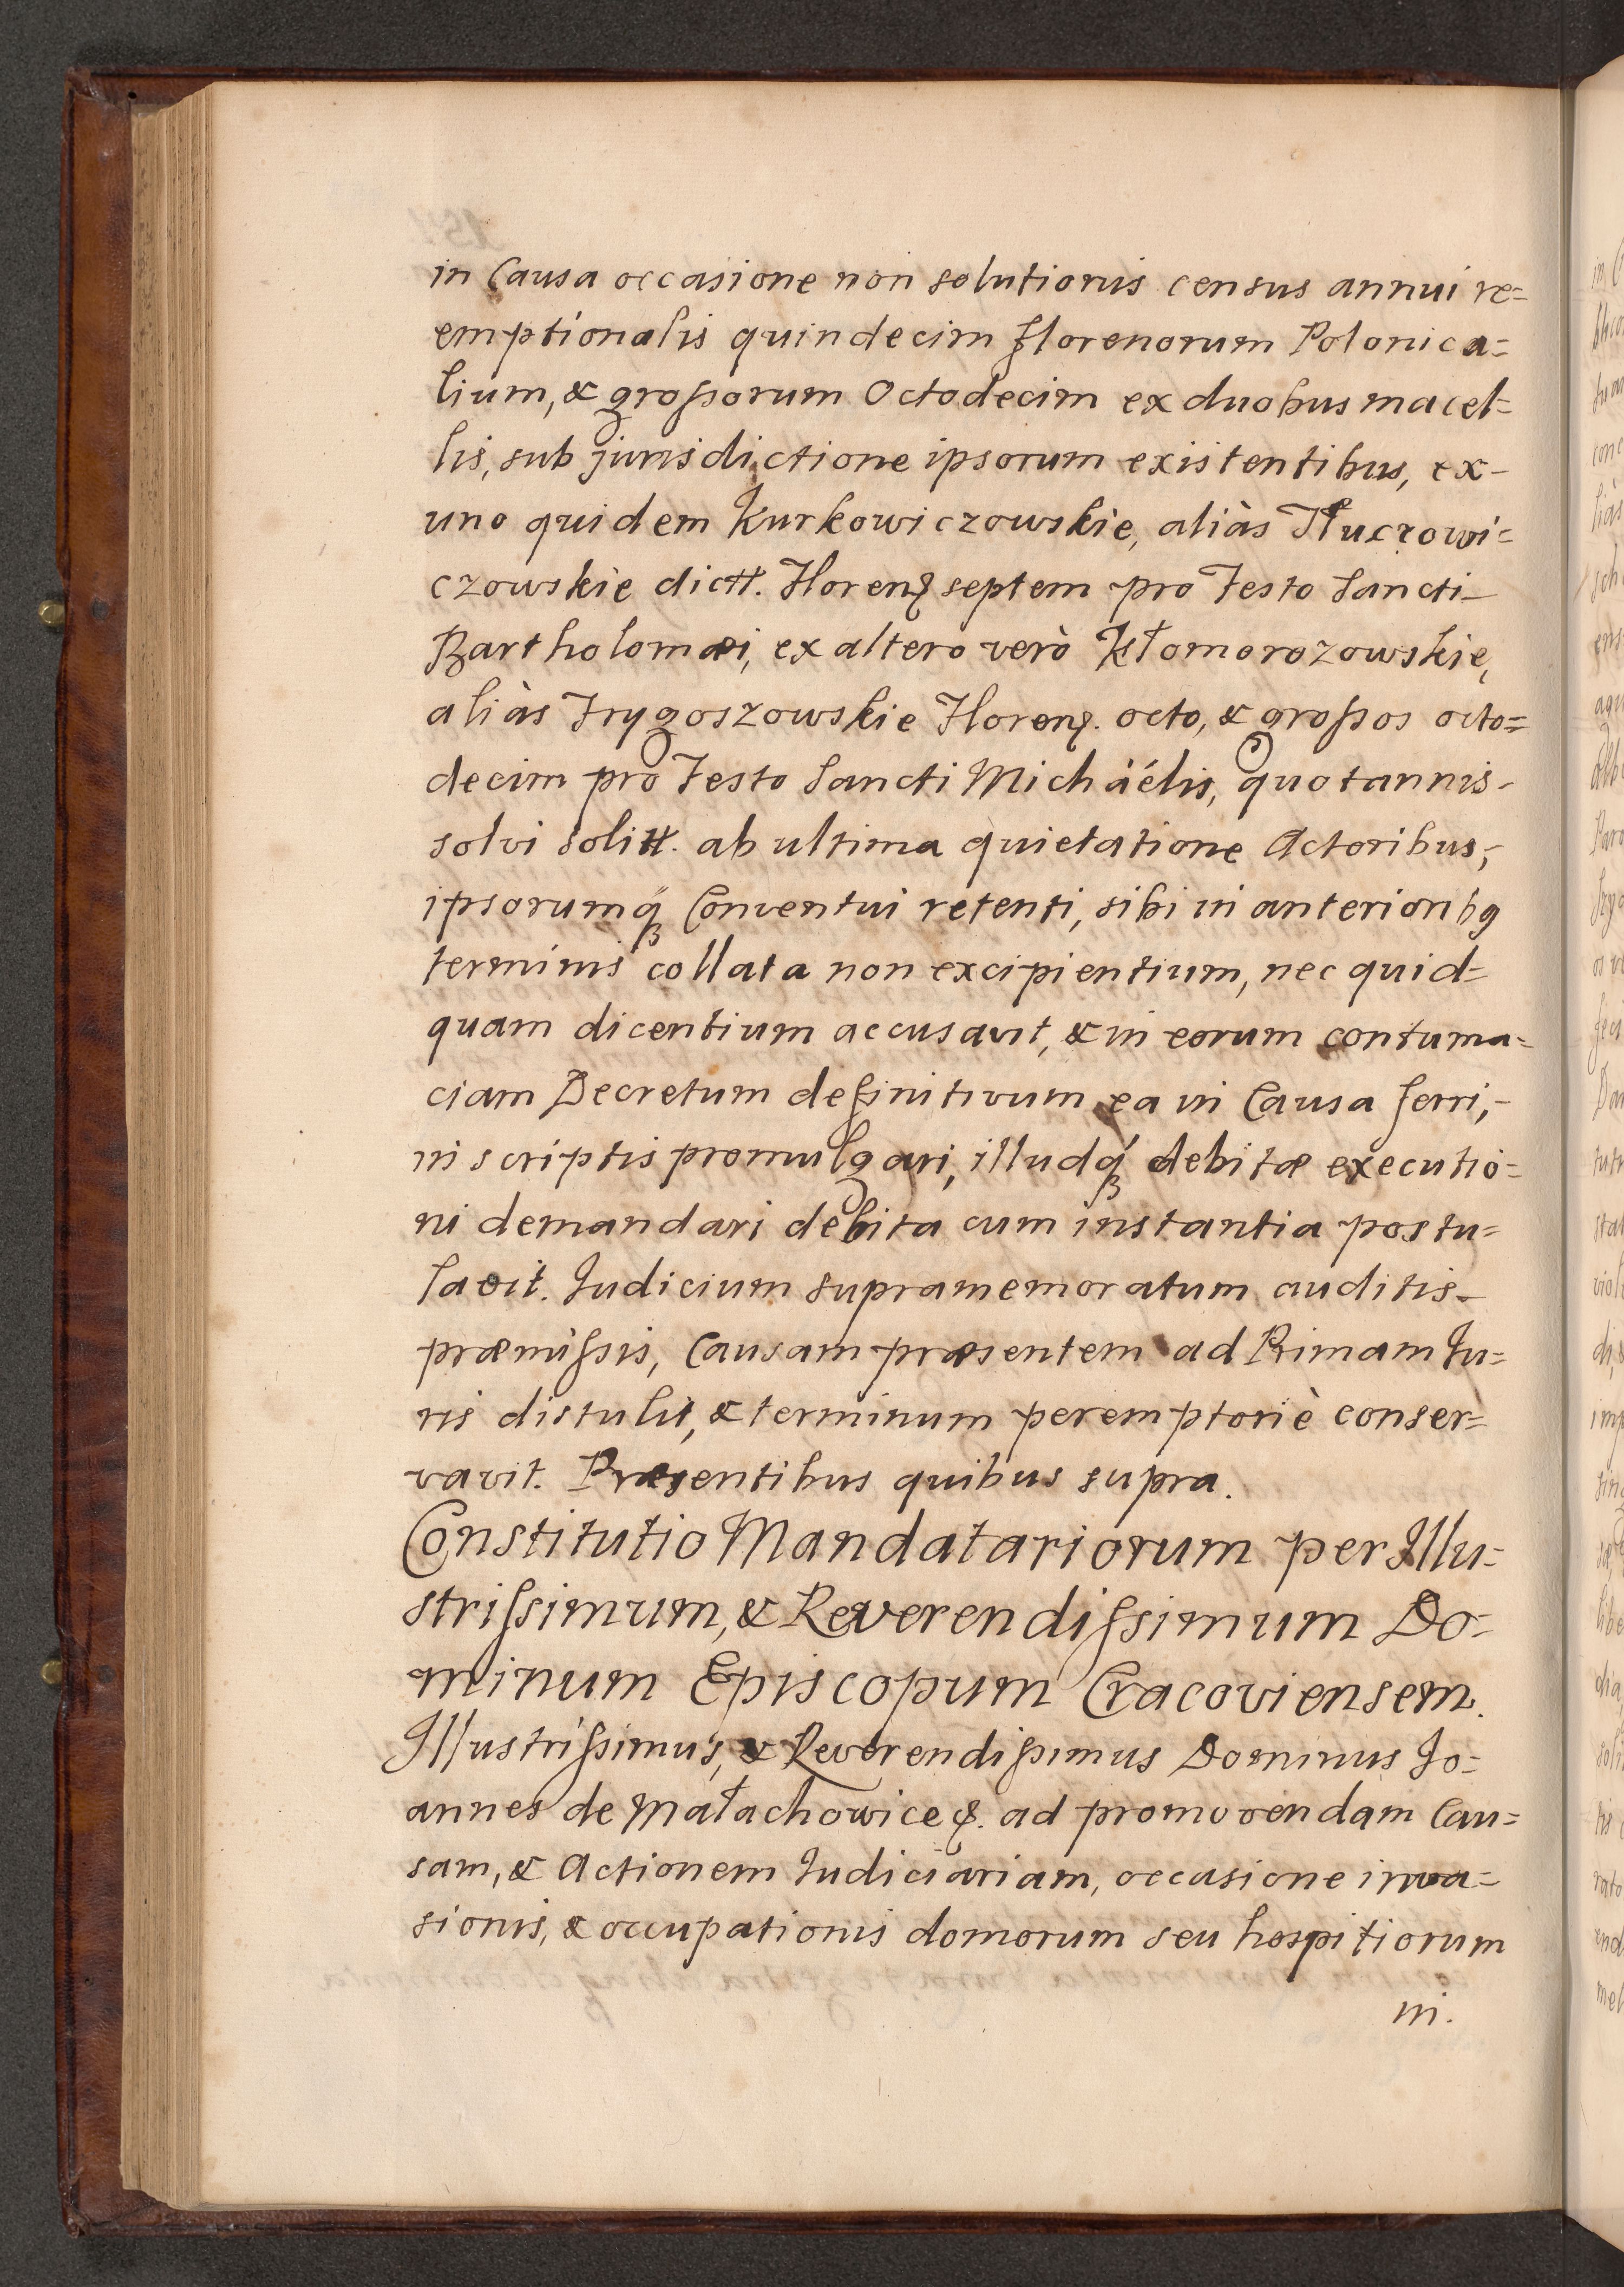 in Causa occasione non solutionis census annui re=
emptionalis quindecim florenorum Polonica=
lium, & grossorum Octodecim ex duobus macel=
lis, sub jurisdictione ipsorum existentibus, ex-
uno quidem Kurkowiczowskie, aliàs Tłuczowi=
czowskie dictt. Floren. septem pro Festo Sancti-
Bartholomæi, ex altero verò Kłomorozowskie,
aliàs Frygoszowskie Floren. octo, & grossos octo=
decim pro Festo Sancti Michäélis, quotannis-
solvi solitt. ab ultima quietatione Actoribus,-
ipsorumq; Conventui retenti, sibi in anteriorib9
terminis collata non excipientium, nec quid=
quam dicentium accusavit, & in eorum contuma=
ciam Decretum definitivum ea in Causa ferri,-
in scriptis promulgari, illudq; debitæ executio=
ni demandari debita cum instantia postu=
lavit. Judicium supramemoratum auditis-
præmissis, Causam præsentem ad Primam Ju=
ris distulit, & terminum peremptoriè conser=
vavit. Præsentibus quibus supra.
Constitutio Mandatariorum per Illu=
strissimum, & Reverendissimum Do=
minum Episcopum Cracoviensem.
Illustrissimus, & Reverendissimus Dominus Jo=
annes de Małachowice &. ad promovendam Cau=
sam, & Actionem Judiciariam, occasione inva=
sionis, & occupationis domorum seu hospitiorum
in.